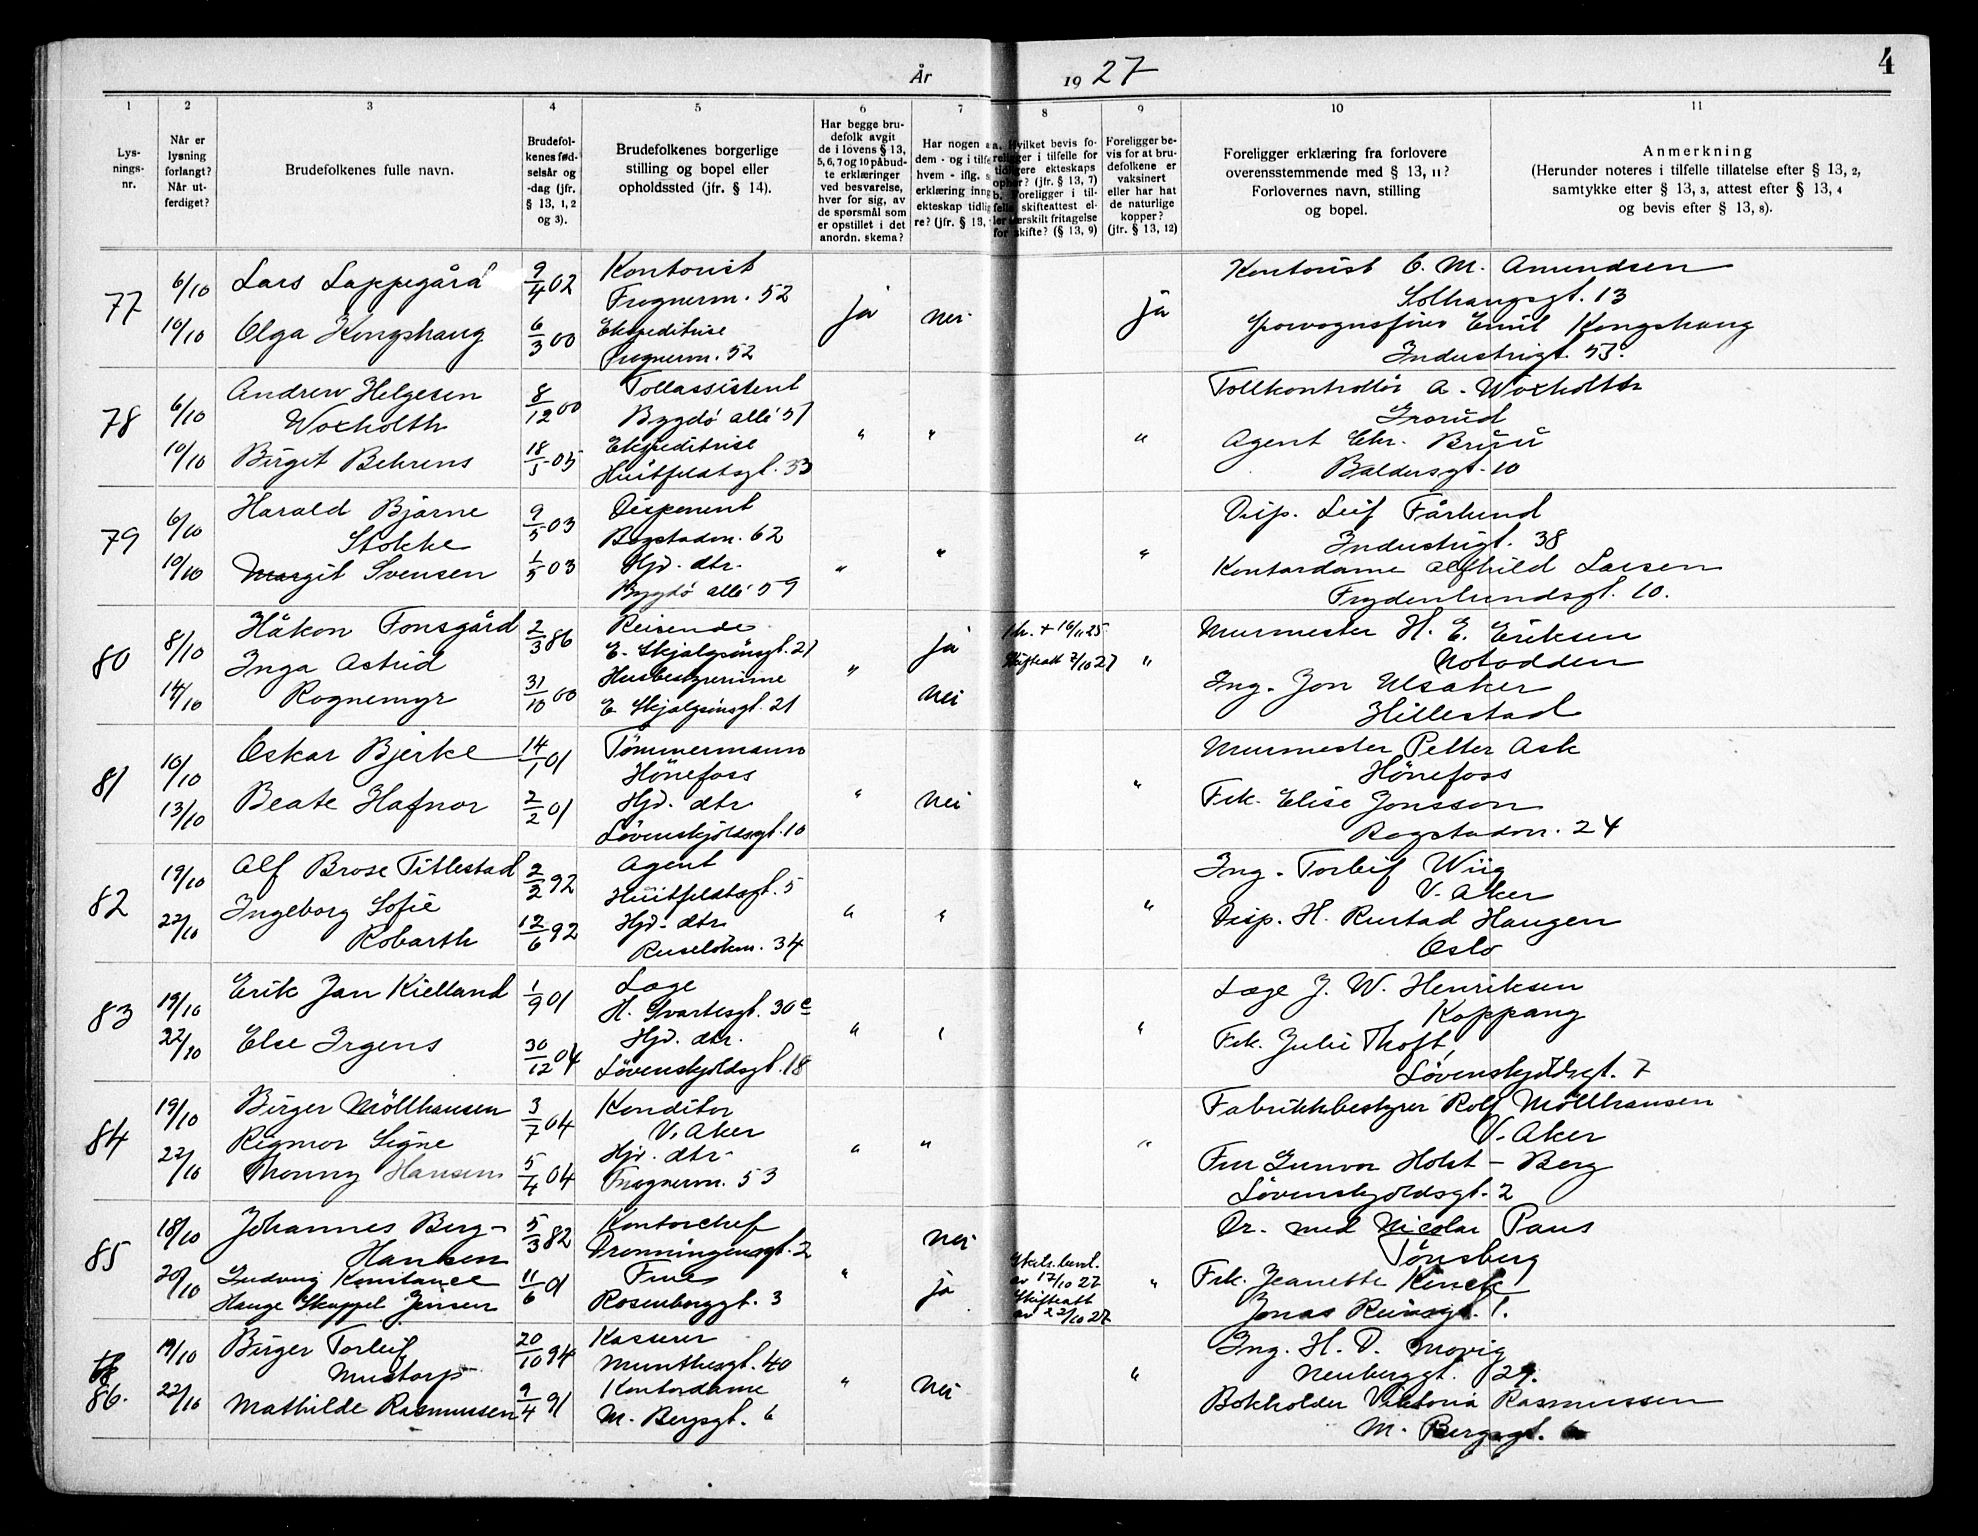 År 1927
4
1 2 3 4 5 6 7 8 9 10 11
Lys-
nings-
nr.
Når er
lysning
forlangt?
Når ut-
ferdiget?
Brudefolkenes fulle navn.
Brudefol-
kenes fød-
selsår og
-dag (jfr.
§ 13, 1, 2
og 3).
Brudefolkenes borgerlige
stilling og bopel eller
opholdssted (jfr. § 14).
Har begge bru-
defolk avgit
de i lovens § 13,
5, 6, 7 og 10 påbud-
te erklæringer
ved besvarelse,
hver for sig, av
de spørsmål som
er opstillet i det
anordn. skema?
Har nogen a
dem - og i tilfe
hvem - iflg. s
erklæring inng
ekteskap tidlig
re? (jfr. § 13,
a. Hvilket bevis fo-
religger i tilfelle for
tidligere ekteskaps
ophør? (jfr. § 13, 7)
b. Foreligger i til-
felle skifteattest el-
ler særskilt fritagelse
for skifte? (§ 13, 9)
Foreligger be-
vis for at bru-
defolkene er
vaksinert
eller har hat
de naturlige
kopper?
(jfr. § 13, 12)
Foreligger erklæring fra forlovere
overensstemmende med § 13, 11?
Forlovernes navn, stilling
og bopel.
Anmerkning
(Herunder noteres i tilfelle tillatelse efter § 13, 2,
samtykke efter § 13, 3, attest efter § 13, 4
og bevis efter § 13, 8).
77 6/10 Lars Lappegård 9/4 02 Kontorist ja nei ja Kontorist C. M. Amundsen
Frognerm. 52 Solhaugsgt. 13
10/10 Olga Kongshaug 6/3 00 Ekspeditrise Emil Kongshaug
Frognerm. 52 Industrigt. 53.
78 6/10 Andrew Helgesen 8/12 00 Tollassistent " " " Tollkontrollør A. Woxholth
Woxholth Bygdö allé 51 Grorud
10/10 Birgit Behrens 18/1 05 Ekspeditrise Agent Chr. Bruu
Huitfeldtsgt. 33 Baldersgt. 10
79 6/10 Harald Bjarne 9/5 03 Disponent " " " Disp. Leif Fårlund
Stokke Bogstadm. 62 Industrigt. 38
10/10 Margit Svensen 1/5 03 Hjv. dtr. Kontordame Alfhild Larsen
Bygdö allé 59 Frydenlundsgt. 10.
80 8/10 Håkon Fonsgård 2/3 86 Reisende " ja 1 h. + 16/11 25 " Murmester H. E. Eriksen
E. Skjalgsönsgt. 21 Skifteatt 7/10 27 Notodden
14/10 Inga Astrid Rognemyr 31/10 00 Husbestyrerinne nei Ing. Jon Ulsaker
E. Skjalgsönsgt. 21 Hillestad
81 10/10 Oskar Bjerke 14/1 01 Tömmermann " nei " Murmester Petter Ask
Hönefoss Hönefoss
13/10 Beate Hafnor 2/2 01 Hjv. dtr Frk. Elise Jonsson
Lövenskjoldsgt. 10 Bogstadm. 24
82 19/10 Alf Brose Titlestad 2/2 92 Agent " " " Ing. Torleif Wiig
Huitfeldtsgt. 5 V. Aker
22/10 Ingeborg Sofie 12/6 92 Hjv. dtr Disp. H. Rustad Haugen
Robarth Ruselökm. 34 Oslo
83 19/10 Erik Jan Kielland 1/9 01 Læge " " " Læge J. W. Henriksen
H. Svartesgt. 30 c Koppang
22/10 Else Irgens 30/12 04 Hjv. dtr. Frk. Julie Thoft,
Lövenskjoldsgt. 18 Lövenskjoldsgt. 7
84 19/10 Birger Möllhausen 3/7 04 Konditor " " " Fabrikkbestyrer Rolf Möllhausen
V. Aker V. Aker
22/10 Rigmor Signe 5/4 04 Hjv. dtr. Fru Gunvor Holst-Berg
Thonny Hansen Frognerm. 53 Lövenskjoldsgt. 2
85 18/10 Johannes Berg- 5/3 82 Kontorchef " nei Dr. med Nicolai Paus
Hansen Dronningensgt. 2 Tönsberg
20/10 Ludovig Konstance 11/6 01 Frue ja Skils. bevl. av 17/10 27 " Frk. Jeanette Kinck
Hauge Skappel Jensen Rosenborggt. 3 Skifteatt av 22/10 27 Jonas Reinsgt. 1.
86. 19/10 Birger Torleif 20/10 94 Kasserer " nei " Ing. H. D. Movig
Mustorp Munthesgt. 40 Neuberggt. 29.
22/10 Mathilde Rasmussen 9/4 91 Kontordame Bokholder Viktoria Rasmussen
M. Bergsgt. 6 M. Bergsgt. 6